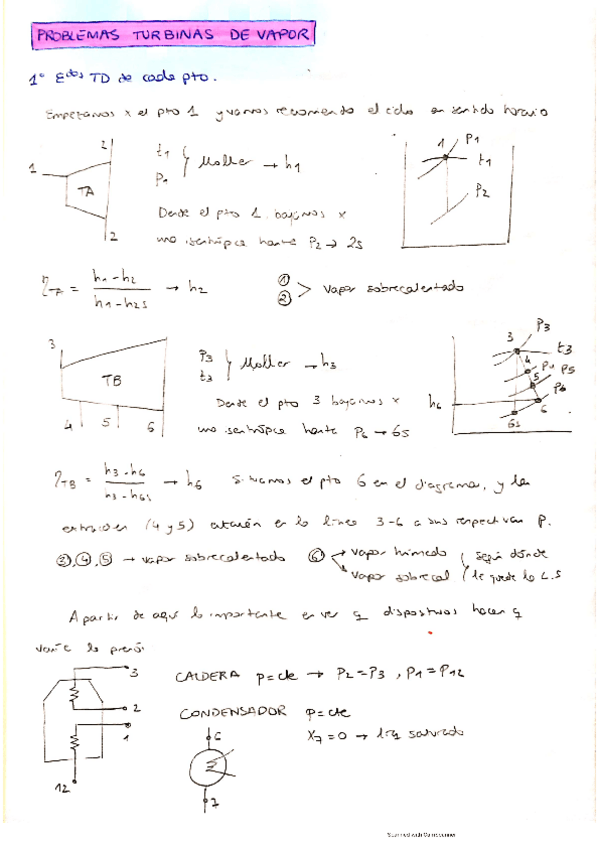 PROBLEMAS TURBINAS DE VAPOR
1º Edos TD de cada pto.
Empezamos x el pto 1 y vamos recorriendo el ciclo en sentido horario
1
TA
2
2
t1
P1
Mollier → h1
Desde el pto 1 bajamos x
una isentrópica hasta P2 → 2s
1
P1
t1
P2
ηTA = h1-h2 / h1-h2s → h2
① ② > vapor sobrecalentado
3
TB
4 5 6
P3
t3
Mollier → h3
Desde el pto 3 bajamos x
una isentrópica hasta P6 → 6s
3
P3
t3
4
P4
5
P5
P6
h6
6
6s
ηTB = h3-h6 / h3-h6s → h6 Situamos el pto 6 en el diagrama, y las
extracciones (4 y 5) estarán en la línea 3-6 a sus respectivas P.
②,④,⑤ → vapor sobrecalentado ⑥ vapor húmedo
vapor sobrecal
según dónde
te quede la C.S
A partir de aquí lo importante es ver q dispositivos hacen q
varíe la presión
3
2
1
12
CALDERA p=cte → P2=P3, P1=P12
CONDENSADOR p=cte
X7=0 → líq saturado
6
7
Scanned with CamScanner